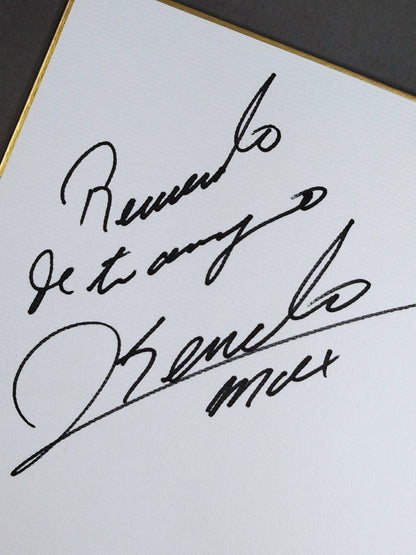 Recuerdo
de tu amigo
Kendo
Mex